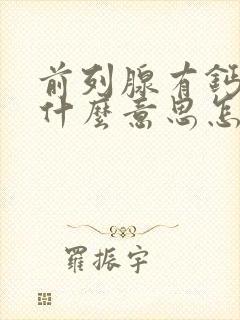 前列腺有鈣
什麼意思怎
羅振宇